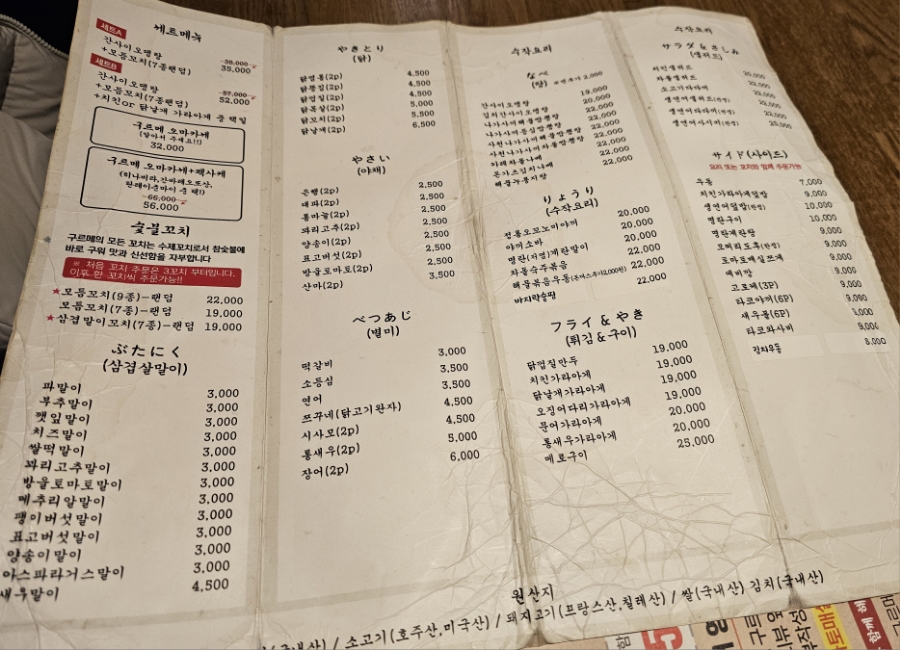 세트메뉴
세트A
간사이오뎅탕
+모듬꼬치(7종랜덤)
38,000
35,000
세트B
간사이오뎅탕
+모듬꼬치(7종랜덤)
+치킨or 닭날개 가라아게 중 택일
57,000
52,000
구르메 오마카세
(알아서 주세요!!)
32,000
구르메 오마카세+팩사케
66,000
56,000
숯불꼬치
구르메의 모든 꼬치는 수제꼬치로서 참숯불에
바로 구워 맛과 신선함을 자부합니다
※ 처음 꼬치 주문은 3꼬치 부터입니다.
이후 한 꼬치씩 주문가능!!
★모듬꼬치(9종)-랜덤 22,000
모듬꼬치(7종)-랜덤 19,000
★삼겹말이꼬치(7종)-랜덤 19,000
ぶたにく
(삼겹살말이)
파말이 3,000
부추말이 3,000
깻잎말이 3,000
치즈말이 3,000
쌀떡말이 3,000
꽈리고추말이 3,000
방울토마토말이 3,000
메추리알말이 3,000
팽이버섯말이 3,000
표고버섯말이 3,000
양송이말이 3,000
아스파라거스말이 3,000
새우말이 4,500
やきとり
(닭)
닭염통(2p) 4,500
닭똥집(2p) 4,500
닭껍질(2p) 4,500
닭목살(2p) 5,000
닭꼬치(2p) 5,500
닭날개(2p) 6,500
やさい
(야채)
은행(2p) 2,500
대파(2p) 2,500
통마늘(2p) 2,500
꽈리고추(2p) 2,500
양송이(2p) 2,500
표고버섯(2p) 2,500
방울토마토(2p) 2,500
산마(2p) 3,500
べつあじ
(별미)
떡갈비 3,000
소등심 3,500
연어 3,500
쯔꾸네(닭고기완자) 4,500
시사모(2p) 4,500
통새우(2p) 5,000
장어(2p) 6,000
수작요리
なべ
(탕)
간사이오뎅탕 19,000
김치간사이오뎅탕 20,000
나가사끼해물짬뽕탕 22,000
22,000
22,000
22,000
22,000
22,000
해물누룽지탕 22,000
りょうり
(수작요리)
정통오꼬노미야끼 20,000
야끼소바 20,000
명란(저염)계란말이 20,000
차돌숙주볶음 22,000
22,000
바지락술찜 22,000
フライ & やき
(튀김&구이)
닭껍질만두 19,000
치킨가라아게 19,000
닭날개가라아게 19,000
오징어다리가라아게 19,000
문어가라아게 20,000
통새우가라아게 20,000
메로구이 25,000
수작요리
サラダ & さしみ
(샐러드)
치킨샐러드 20,000
차돌샐러드 22,000
소고기타다끼 22,000
생연어샐러드(한정) 22,000
22,000
생연어사시미(한정) 25,000
サイド(사이드)
요리 또는 꼬치와 함께 주문가능
우동 7,000
치킨가라아게덮밥 9,000
생연어덮밥(한정) 10,000
명란구이 10,000
명란계란탕 9,000
오꼬노미
토마토베실쯔께 9,000
에비밥 9,000
고로케(3P) 9,000
타코야끼(6P) 9,000
새우롤(6P) 9,000
타코와사비 9,000
김치우동 8,000
원산지
/ 소고기(호주산,미국산) / 돼지고기(프랑스산,칠레산) / 쌀(국내산) 김치(국내산)